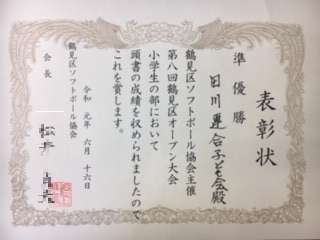 表彰状
準優勝
日川連合子ども会殿
鶴見区ソフトボール協会主催
第八回鶴見区オープン大会
小学生の部において
頭書の成績を収められましたので
これを賞します。
令和元年六月十六日
鶴見区ソフトボール協会
会長